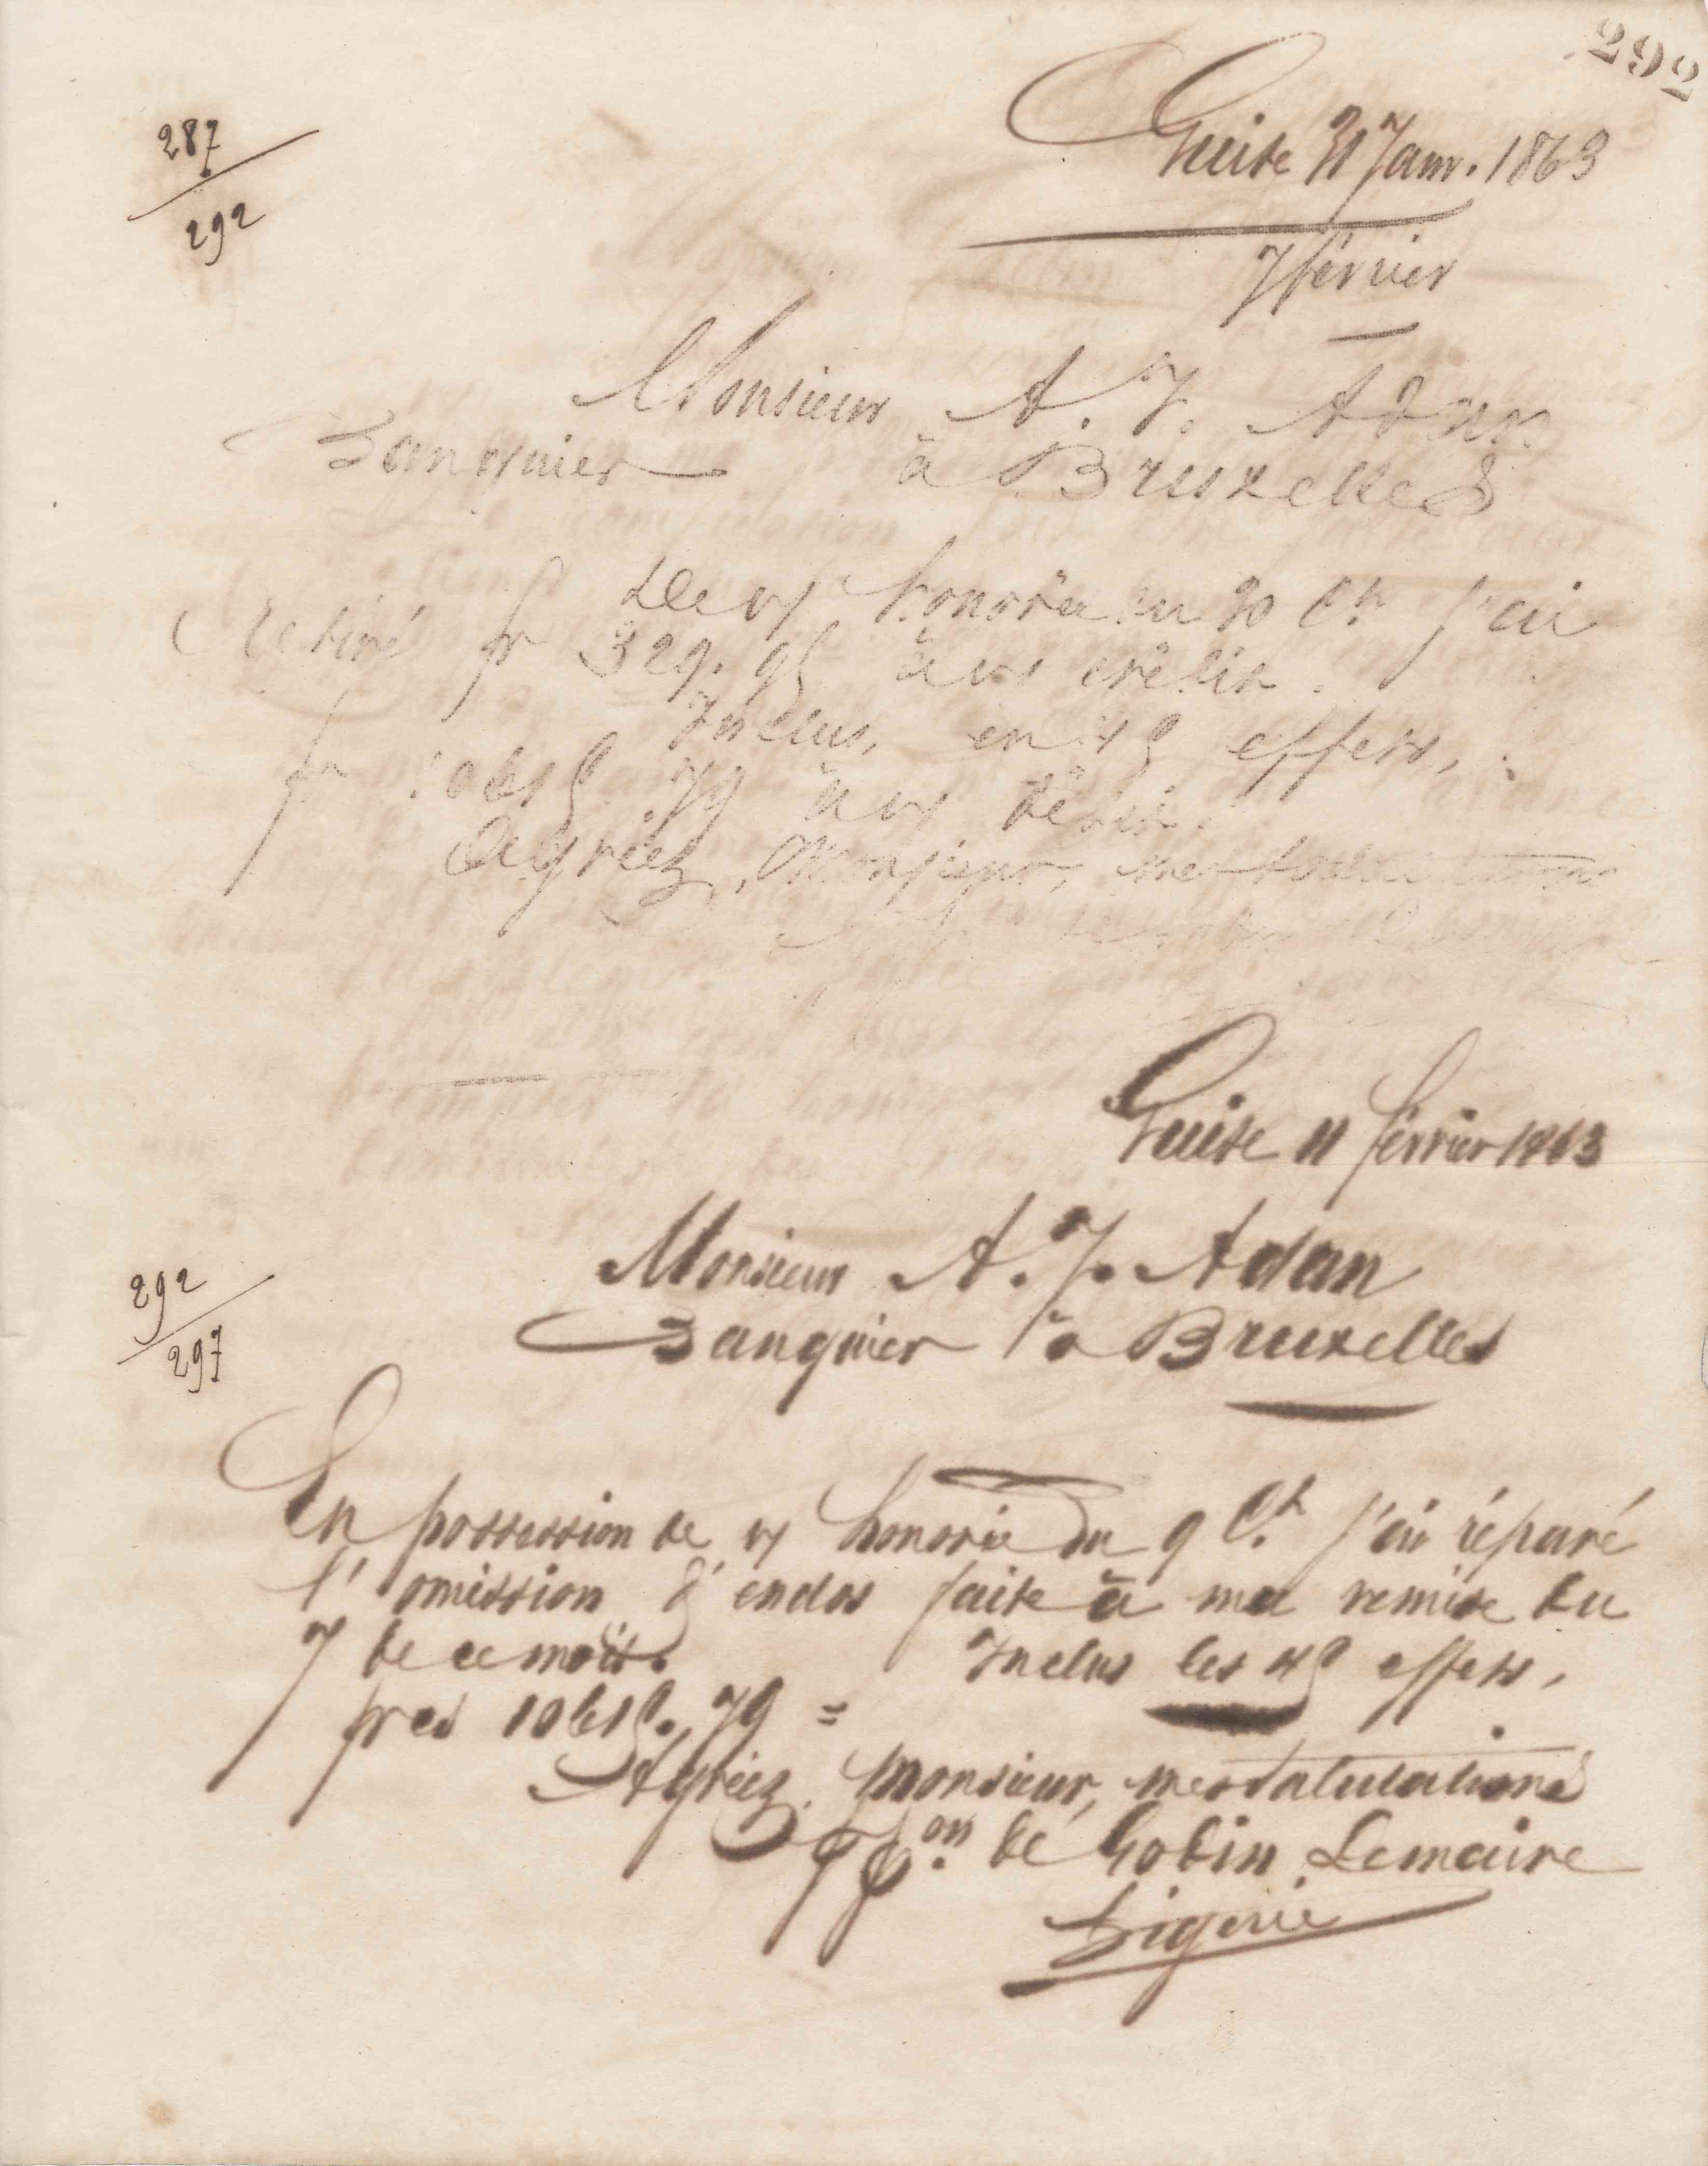 292
287
292
Guise 31 Janv. 1863
7 février
Monsieur A. J. Adan
Banquier à Bruxelles
De vf honorée du 30 Ct j'ai
retiré fr 329. 95 à vf crédit.
Inclus, en 45 effets,
fr 10615. 79 à vf débit.
Agréez, Monsieur, mes salutations
Guise 11 février 1863
292
297
Monsieur A. J. Adan
Banquier à Bruxelles
En possession de vf honorée du 9 Ct j'ai réparé
l'omission d'endos faite à ma remise du
7 de ce mois. Inclus les 45 effets,
fres 10615. 79 =
Agréez, Monsieur, mes salutations
PPon de Godin Lemaire